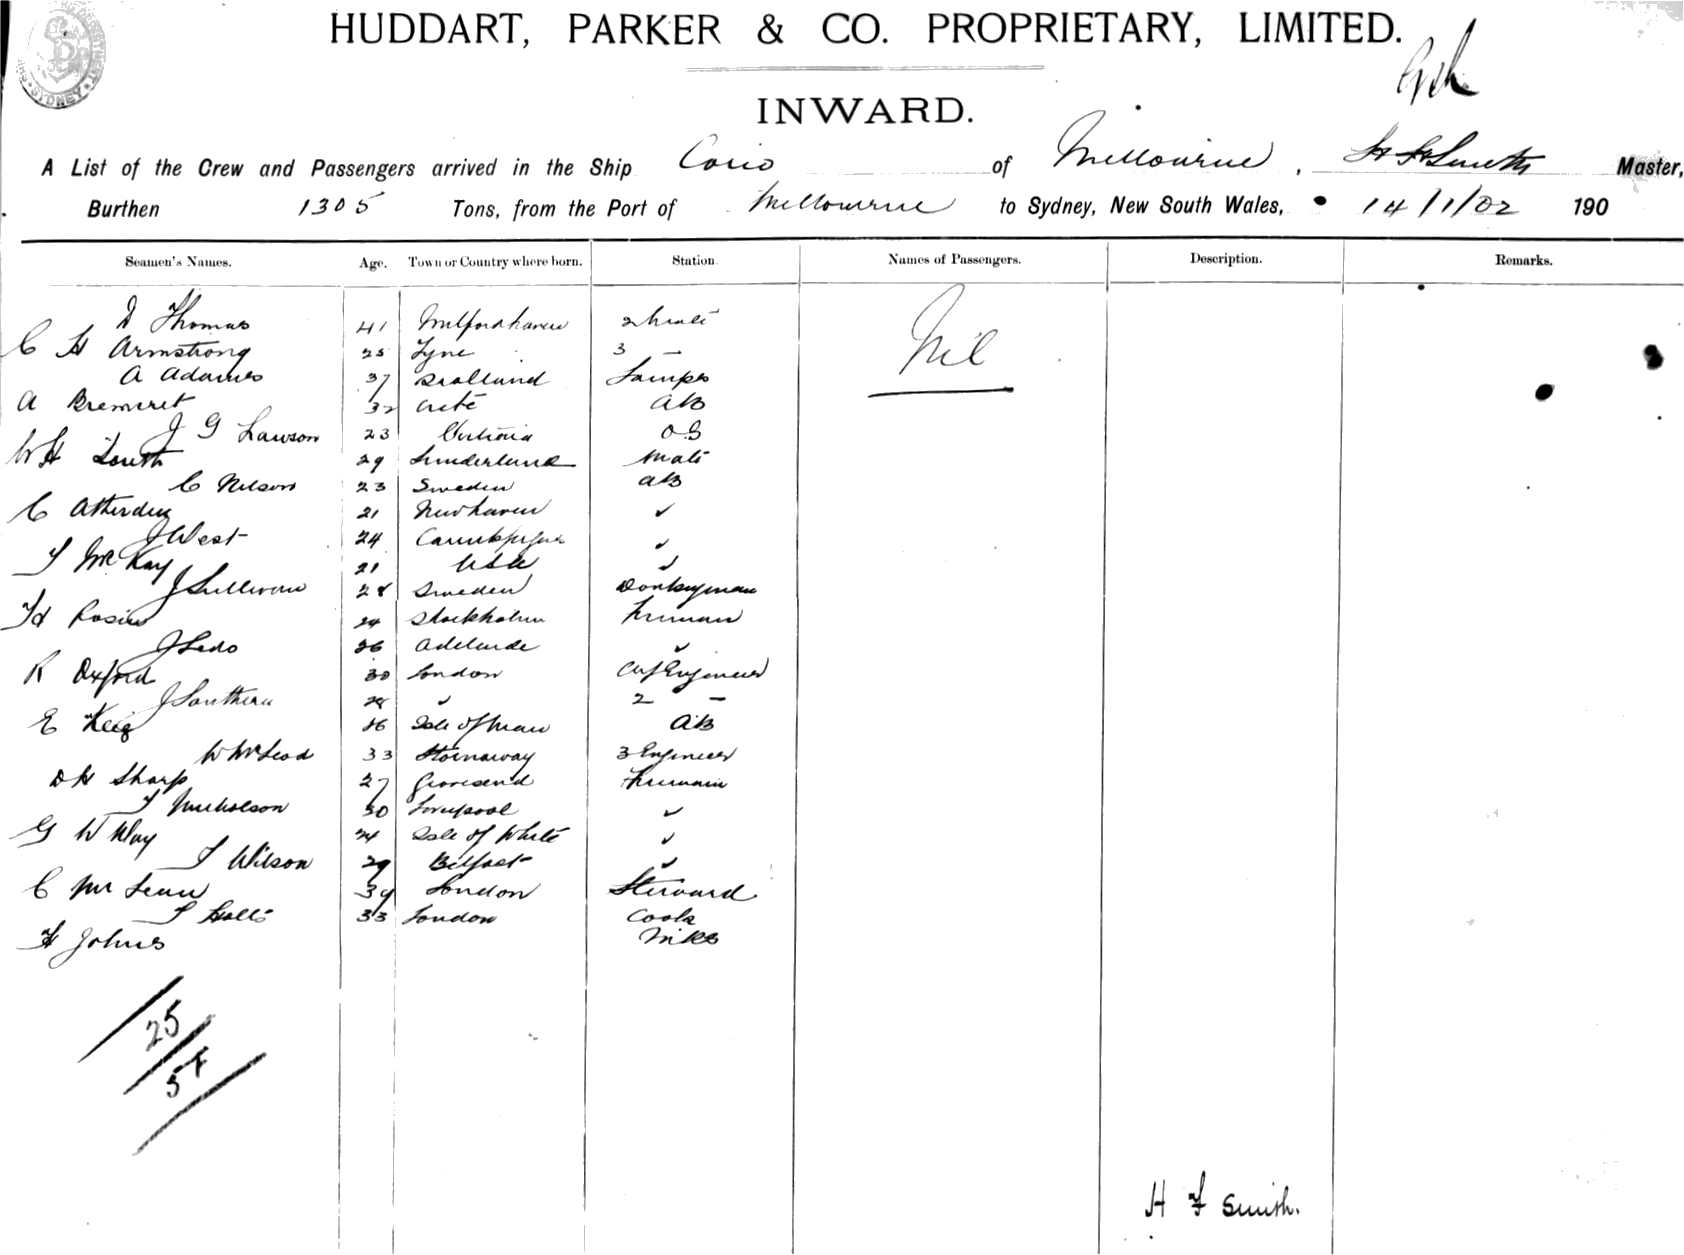 HUDDART, PARKER & CO. PROPRIETARY, LIMITED.
INWARD.
A List of the Crew and Passengers arrived in the Ship Corio of Melbourne, Smith Master,
Burthen 1305 Tons, from the Port of Melbourne to Sydney, New South Wales, 14/1/02 190
Seamen's Names. Age. Town or Country where born. Station. Names of Passengers. Description. Remarks.
D Thomas 41 Milfordhaven 2 Mate Nil
C H Armstrong 25 Tyne 3 —
A Adames 37 Lamps
A 32 Crete AB
J G Lawson 23 Victoria OS
W H 29 Sunderland Mate
C Nelson 23 Sweden AB
C Attenden 21 Newhaven ✓
J West 24 ✓
T McKay 21 USA ✓
J Sullivan 28 Sweden Donkeyman
Rosier 24 Stockholm Fireman
J Ledo 26 Adelaide ✓
R Oxford 30 London Chf Engineer
J Southern 28 ✓ 2 —
E Keig 26 Isle of Man AB
W McLeod 33 Stornaway 3 Engineer
D H Sharp 27 Gravesend Fireman
T Nicholson 30 Liverpool ✓
G W Way 24 Isle of White ✓
T Wilson 29 Belfast ✓
C McLean 39 London Steward
T Halls 33 London Cook
H Johns
25
57
H F Smith.